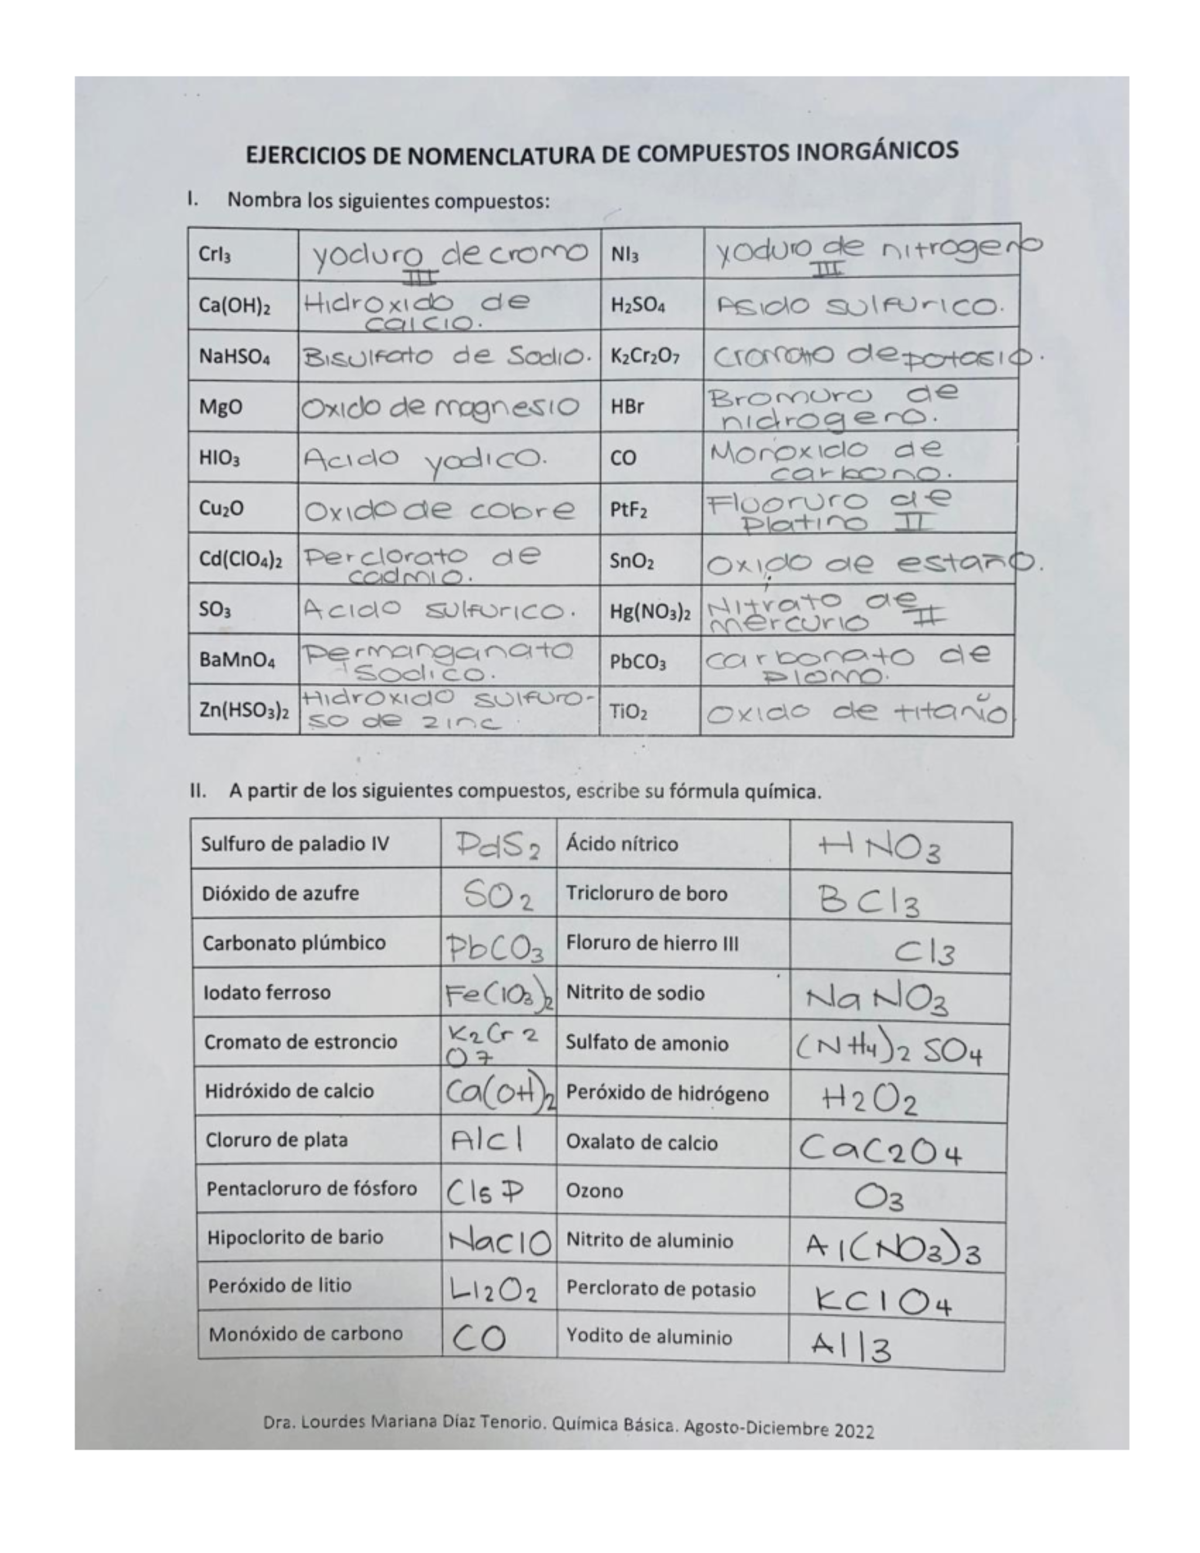 EJERCICIOS DE NOMENCLATURA DE COMPUESTOS INORGÁNICOS
I. Nombra los siguientes compuestos:
CrI3 yoduro de cromo III NI3 yoduro de nitrogeno III
Ca(OH)2 Hidroxido de calcio. H2SO4 Asido sulfurico.
NaHSO4 Bisulfato de Sodio. K2Cr2O7 Cromato de potasio.
MgO Oxido de magnesio HBr Bromuro de nidrogeno.
HIO3 Acido yodico. CO Monoxido de carbono.
Cu2O Oxido de cobre PtF2 Fluoruro de Platino II
Cd(ClO4)2 Perclorato de cadmio. SnO2 Oxido de estaño.
SO3 Acido sulfurico. Hg(NO3)2 Nitrato de mercurio II
BaMnO4 Permanganato Sodico. PbCO3 carbonato de plomo.
Zn(HSO3)2 Hidroxido sulfuro-so de zinc TiO2 Oxido de titaño
II. A partir de los siguientes compuestos, escribe su fórmula química.
Sulfuro de paladio IV PdS2 Ácido nítrico HNO3
Dióxido de azufre SO2 Tricloruro de boro BCl3
Carbonato plúmbico PbCO3 Floruro de hierro III Cl3
Iodato ferroso Fe(IO3)2 Nitrito de sodio NaNO3
Cromato de estroncio K2Cr2O7 Sulfato de amonio (NH4)2 SO4
Hidróxido de calcio Ca(OH)2 Peróxido de hidrógeno H2O2
Cloruro de plata AlCl Oxalato de calcio CaC2O4
Pentacloruro de fósforo Cl5P Ozono O3
Hipoclorito de bario NaClO Nitrito de aluminio Al(NO3)3
Peróxido de litio LI2O2 Perclorato de potasio KClO4
Monóxido de carbono CO Yodito de aluminio AlI3
Dra. Lourdes Mariana Díaz Tenorio. Química Básica. Agosto-Diciembre 2022